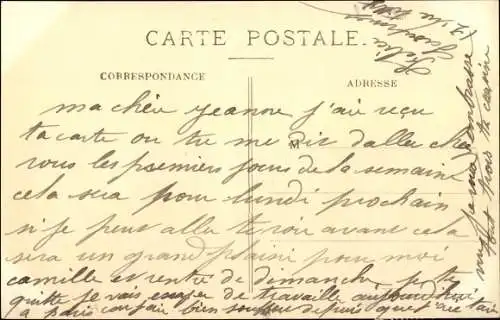 CARTE POSTALE.
CORRESPONDANCE
ADRESSE
M
ma chère jeanne j'ai reçu
ta carte ou tu me dit daller che
vous les premiers jours de la semaine
cela sera pour lundi prochain
si je peut aller te voir avant cela
sera un grand plaisir pour moi
camille et rentré de dimanche je te
quitte je vais essayer de travaille aujourdhui
a paris bien depuis que
je vous embrasse
tout trois ta cousine